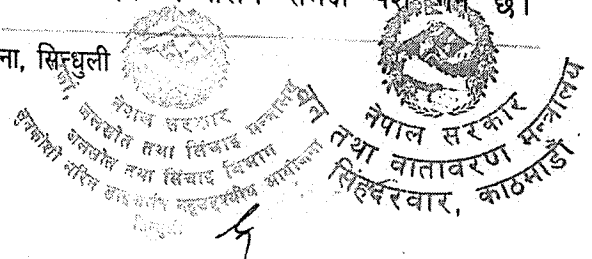 छ।
ना, सिन्धुली
नेपाल सरकार
जलस्रोत तथा सिंचाइ मन्त्रालय
जलस्रोत तथा सिंचाइ विभाग
सुनकोशी मरिन डाइभर्सन बहुउद्देश्यीय आयोजना
सिन्धुली
नेपाल सरकार
वन तथा वातावरण मन्त्रालय
सिंहदरवार, काठमाडौं